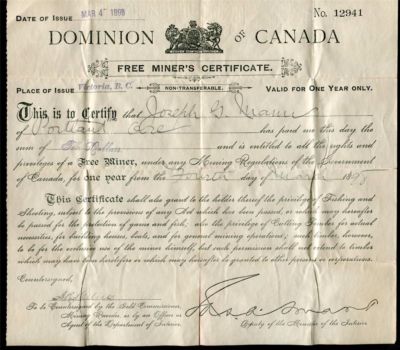 DATE OF ISSUE MAR 4 1898 No. 12941
DOMINION OF CANADA
FREE MINER'S CERTIFICATE.
PLACE OF ISSUE Victoria, B. C. NON-TRANSFERABLE. VALID FOR ONE YEAR ONLY.
This is to Certify that Joseph G. Mann
of Portland Ore has paid me this day the
sum of Ten Dollars and is entitled to all the rights and
privileges of a Free Miner, under any Mining Regulations of the Government
of Canada, for one year from the Fourth day of March 1898
This Certificate shall also grant to the holder thereof the privilege of Fishing and
Shooting, subject to the provisions of any Act which has been passed, or which may hereafter
be passed for the protection of game and fish; also the privilege of Cutting Timber for actual
necessities, for building houses, boats, and for general mining operations; such timber, however,
to be for the exclusive use of the miner himself, but such permission shall not extend to timber
which may have been heretofore or which may hereafter be granted to other persons or corporations.
Countersigned,
To be Countersigned by the Gold Commissioner,
Mining Recorder, or by an Officer or
Agent of the Department of Interior.
Deputy of the Minister of the Interior.